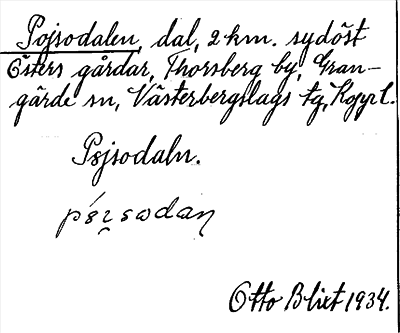 Pojsodalen, dal, 2 km. sydöst
Östers gårdar, Thorsberg by, Gran-
gärde sn, Västerbergslags tg, Kopp l.
Påjsodaln.
Otto Blixt 1934.